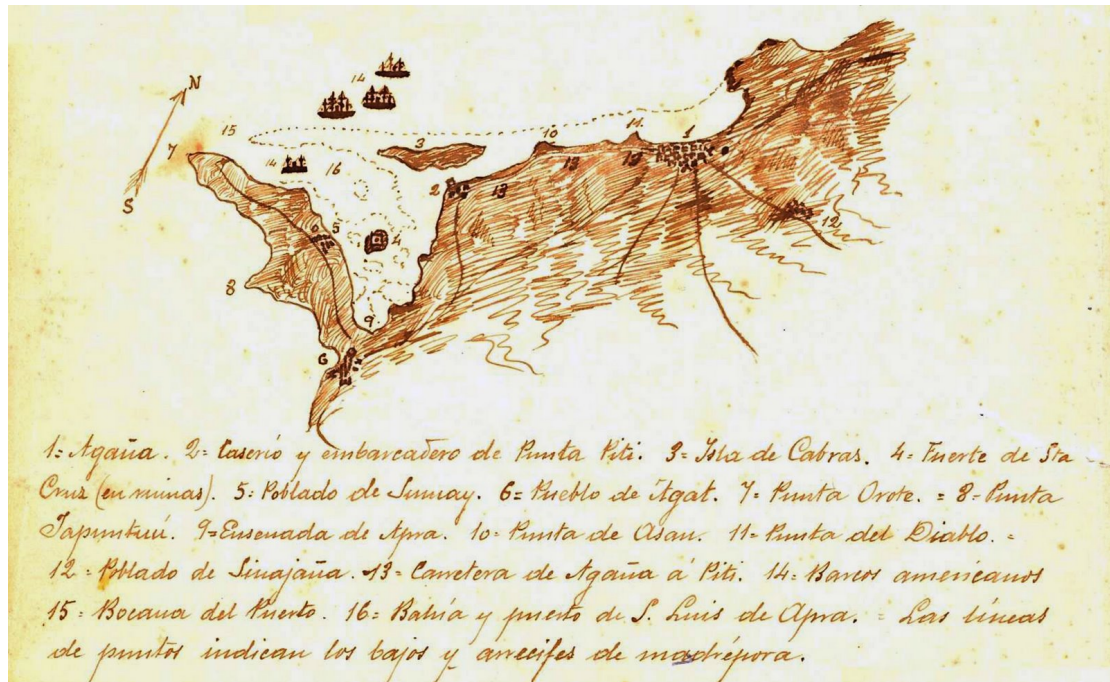 N
14
15
10
11
1
7
3
14
16
13
13
2
13
S
6
5
4
12
8
9
6
1= Agaña. 2= Caserío y embarcadero de Punta Piti. 3= Isla de Cabras. 4= Fuerte de Sta
Cruz (en ruinas). 5= Poblado de Sumay. 6= Pueblo de Agat. 7= Punta Orote. = 8= Punta
9= Ensenada de Apra. 10= Punta de Asan. 11= Punta del Diablo. =
12= Poblado de Sinajaña. 13= Carretera de Agaña á Piti. 14= Barcos americanos
15= Bocana del Puerto. 16= Bahía y puerto de S. Luis de Apra. = Las líneas
de puntos indican los bajos y arrecifes de madrépora.